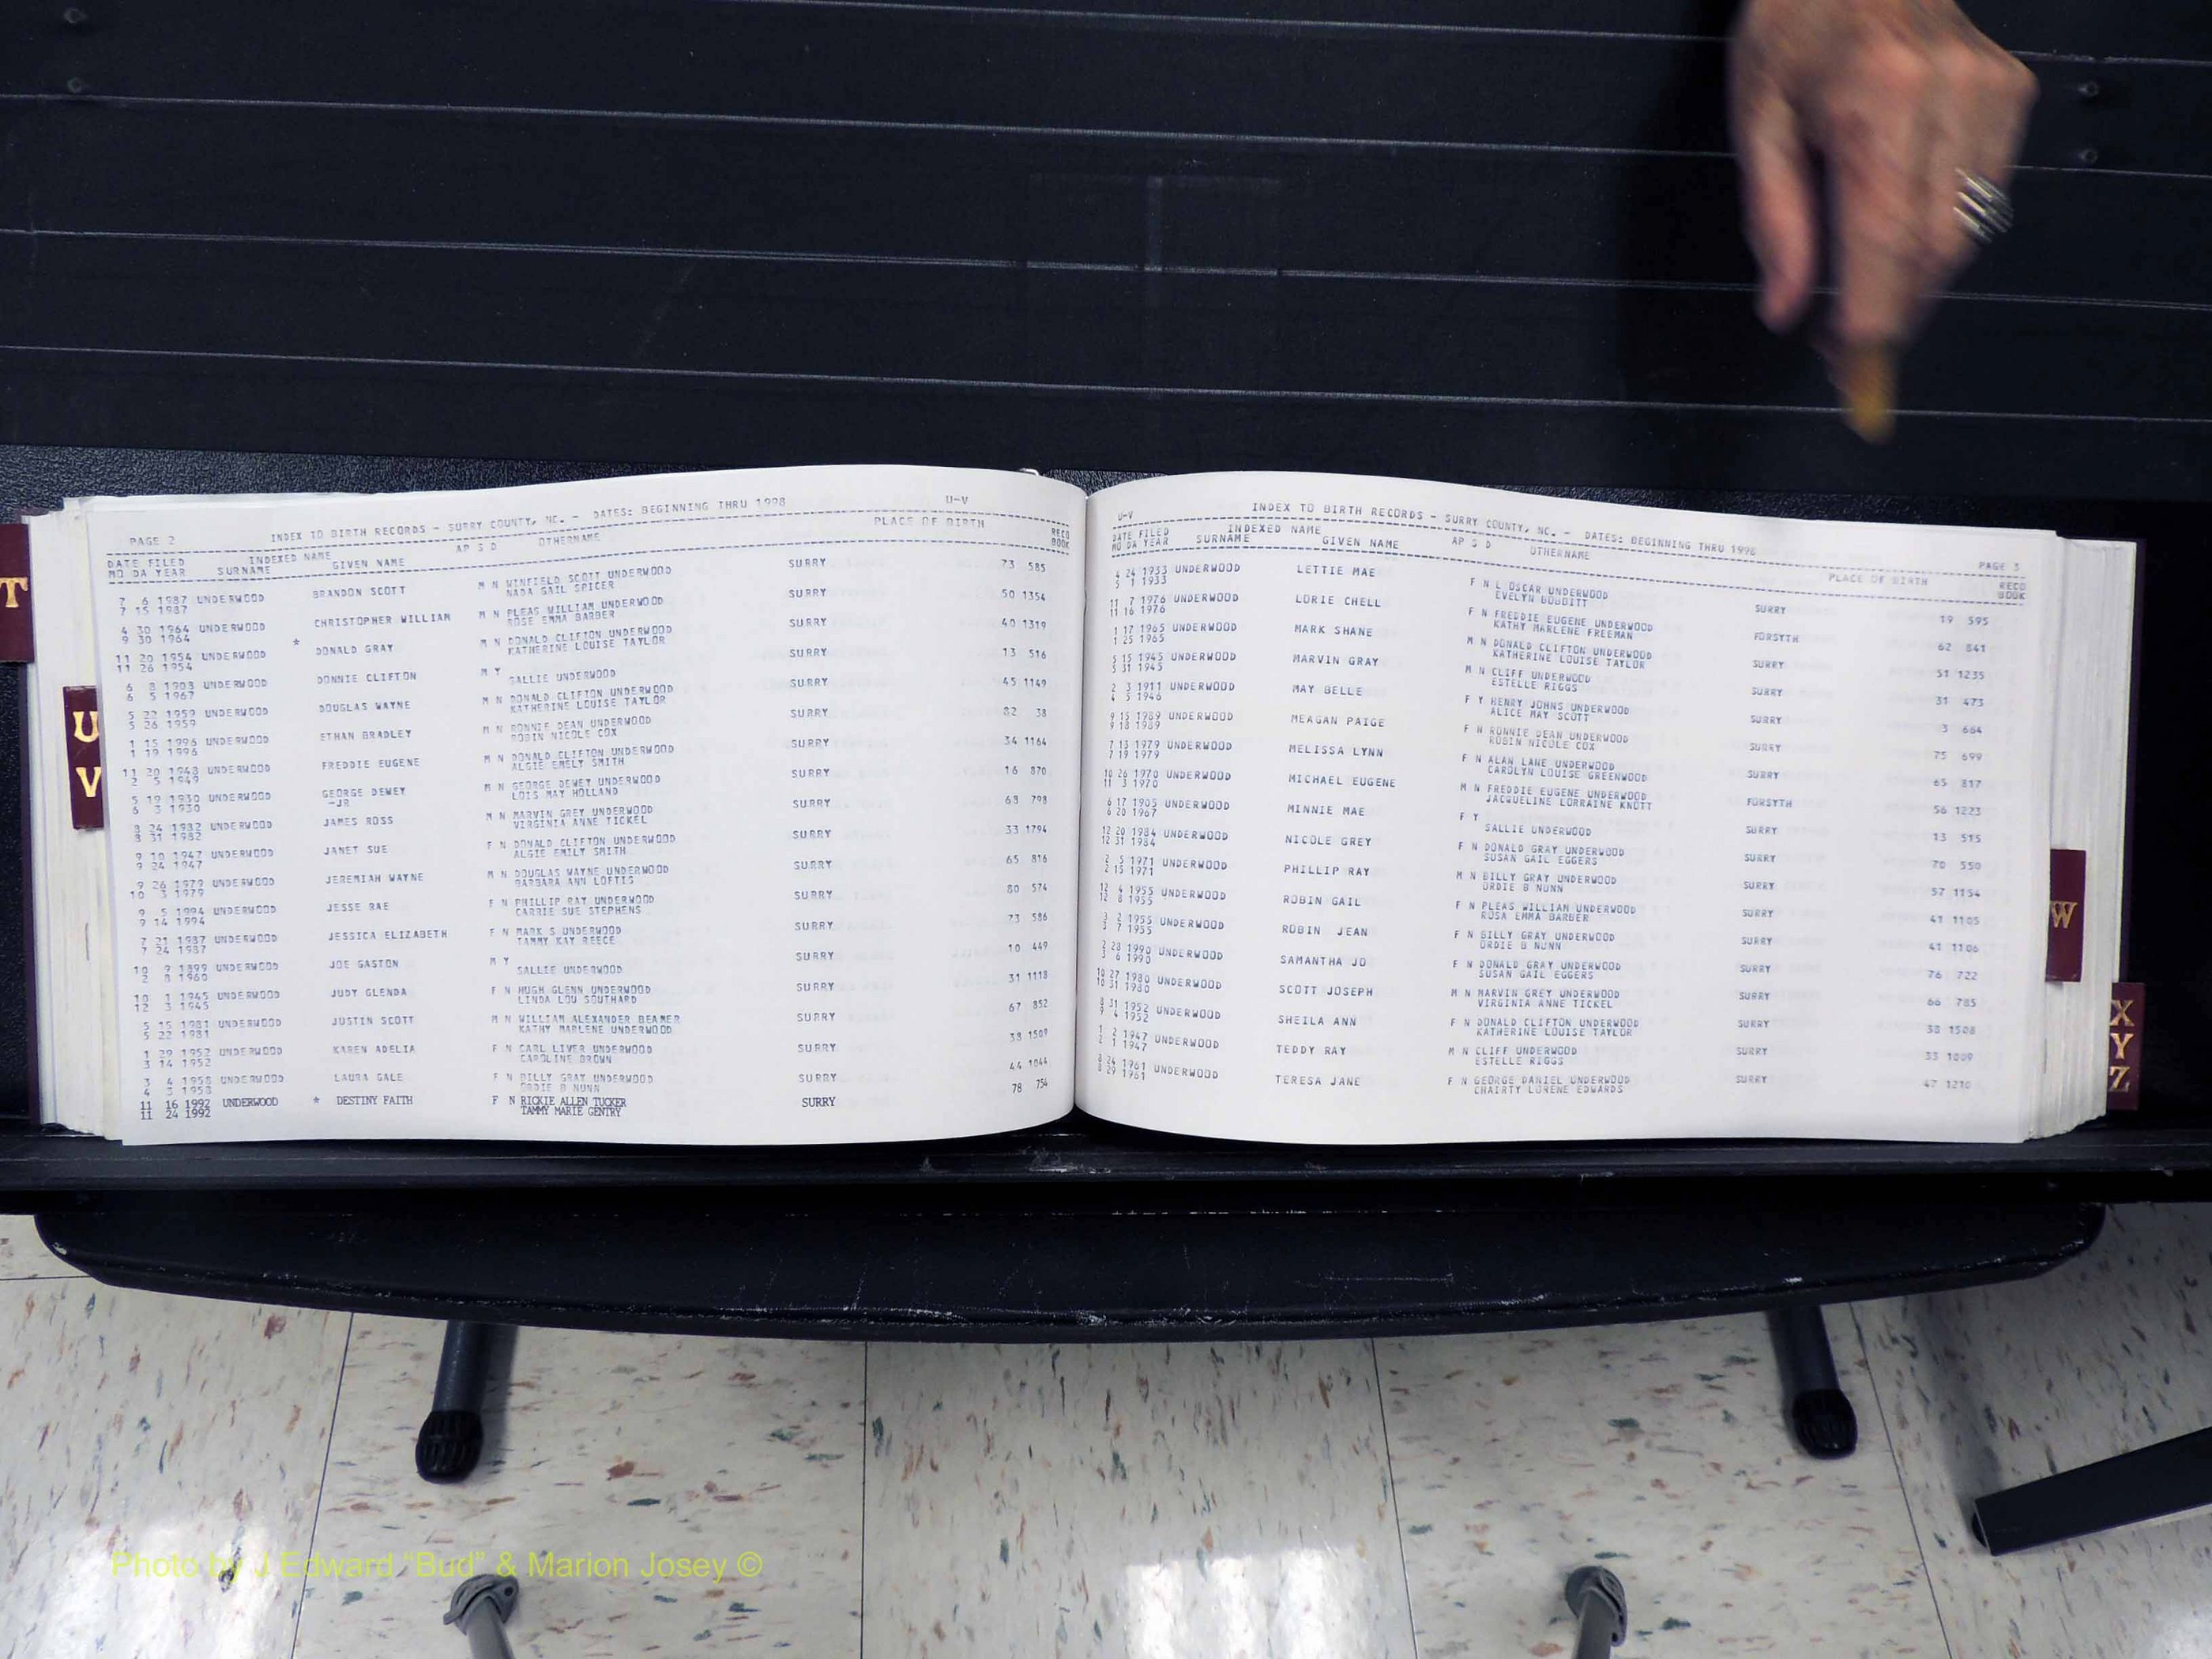 PAGE 2 INDEX TO BIRTH RECORDS - SURRY COUNTY, NC. - DATES: BEGINNING THRU 1998 U-V
DATE FILED INDEXED NAME AP S D OTHERNAME PLACE OF BIRTH RECD
MO DA YEAR SURNAME GIVEN NAME BOOK
7 6 1987 UNDERWOOD BRANDON SCOTT M N WINFIELD SCOTT UNDERWOOD SURRY 73 585
7 15 1987 NADA GAIL SPICER
4 30 1964 UNDERWOOD CHRISTOPHER WILLIAM M N PLEAS WILLIAM UNDERWOOD SURRY 50 1354
9 30 1964 ROSE EMMA BARBER
11 20 1954 UNDERWOOD * DONALD GRAY M N DONALD CLIFTON UNDERWOOD SURRY 40 1319
11 26 1954 KATHERINE LOUISE TAYLOR
6 8 1903 UNDERWOOD DONNIE CLIFTON M Y SURRY 13 516
6 5 1967 SALLIE UNDERWOOD
5 22 1959 UNDERWOOD DOUGLAS WAYNE M N DONALD CLIFTON UNDERWOOD SURRY 45 1149
5 26 1959 KATHERINE LOUISE TAYLOR
1 15 1996 UNDERWOOD ETHAN BRADLEY M N RONNIE DEAN UNDERWOOD SURRY 82 38
1 19 1996 ROBIN NICOLE COX
11 20 1948 UNDERWOOD FREDDIE EUGENE M N DONALD CLIFTON UNDERWOOD SURRY 34 1164
2 5 1949 ALGIE EMELY SMITH
5 19 1930 UNDERWOOD GEORGE DEWEY M N GEORGE DEWEY UNDERWOOD SURRY 16 870
6 3 1930 -JR LOIS MAY HOLLAND
8 24 1982 UNDERWOOD JAMES ROSS M N MARVIN GREY UNDERWOOD SURRY 68 798
8 31 1982 VIRGINIA ANNE TICKEL
9 10 1947 UNDERWOOD JANET SUE F N DONALD CLIFTON UNDERWOOD SURRY 33 1794
9 24 1947 ALGIE EMILY SMITH
9 26 1979 UNDERWOOD JEREMIAH WAYNE M N DOUGLAS WAYNE UNDERWOOD SURRY 65 816
10 3 1979 BARBARA ANN LOFTIS
9 5 1994 UNDERWOOD JESSE RAE F N PHILLIP RAY UNDERWOOD SURRY 80 574
9 14 1994 CARRIE SUE STEPHENS
7 21 1987 UNDERWOOD JESSICA ELIZABETH F N MARK S UNDERWOOD SURRY 73 586
7 24 1987 TAMMY KAY REECE
10 9 1899 UNDERWOOD JOE GASTON M Y SURRY 10 449
2 8 1960 SALLIE UNDERWOOD
10 1 1945 UNDERWOOD JUDY GLENDA F N HUGH GLENN UNDERWOOD SURRY 31 1118
12 3 1945 LINDA LOU SOUTHARD
5 15 1981 UNDERWOOD JUSTIN SCOTT M N WILLIAM ALEXANDER BEAMER SURRY 67 852
5 22 1981 KATHY MARLENE UNDERWOOD
1 29 1952 UNDERWOOD KAREN ADELIA F N CARL LIVER UNDERWOOD SURRY 38 1509
3 14 1952 CAROLINE BROWN
3 4 1958 UNDERWOOD LAURA GALE F N BILLY GRAY UNDERWOOD SURRY 44 1044
4 3 1958 ORDIE B NUNN
11 16 1992 UNDERWOOD * DESTINY FAITH F N RICKIE ALLEN TUCKER SURRY 78 754
11 24 1992 TAMMY MARIE GENTRY
U-V INDEX TO BIRTH RECORDS - SURRY COUNTY, NC. - DATES: BEGINNING THRU 1998 PAGE 3
DATE FILED INDEXED NAME AP S D OTHERNAME PLACE OF BIRTH RECD
MO DA YEAR SURNAME GIVEN NAME BOOK
4 24 1933 UNDERWOOD LETTIE MAE F N L OSCAR UNDERWOOD SURRY 19 595
5 1 1933 EVELYN BOBBITT
11 7 1976 UNDERWOOD LORIE CHELL F N FREDDIE EUGENE UNDERWOOD FORSYTH 62 841
11 16 1976 KATHY MARLENE FREEMAN
1 17 1965 UNDERWOOD MARK SHANE M N DONALD CLIFTON UNDERWOOD SURRY 51 1235
1 25 1965 KATHERINE LOUISE TAYLOR
5 15 1945 UNDERWOOD MARVIN GRAY M N CLIFF UNDERWOOD SURRY 31 473
5 31 1945 ESTELLE RIGGS
2 3 1911 UNDERWOOD MAY BELLE F Y HENRY JOHNS UNDERWOOD SURRY 3 664
4 5 1946 ALICE MAY SCOTT
9 15 1989 UNDERWOOD MEAGAN PAIGE F N RONNIE DEAN UNDERWOOD SURRY 75 699
9 18 1989 ROBIN NICOLE COX
7 13 1979 UNDERWOOD MELISSA LYNN F N ALAN LANE UNDERWOOD SURRY 65 817
7 19 1979 CAROLYN LOUISE GREENWOOD
10 26 1970 UNDERWOOD MICHAEL EUGENE M N FREDDIE EUGENE UNDERWOOD FORSYTH 56 1223
11 3 1970 JACQUELINE LORRAINE KNOTT
6 17 1905 UNDERWOOD MINNIE MAE F Y SURRY 13 515
6 20 1967 SALLIE UNDERWOOD
12 20 1984 UNDERWOOD NICOLE GREY F N DONALD GRAY UNDERWOOD SURRY 70 550
12 31 1984 SUSAN GAIL EGGERS
2 5 1971 UNDERWOOD PHILLIP RAY M N BILLY GRAY UNDERWOOD SURRY 57 1154
2 15 1971 ORDIE B NUNN
12 4 1955 UNDERWOOD ROBIN GAIL F N PLEAS WILLIAM UNDERWOOD SURRY 41 1105
12 8 1955 ROSA EMMA BARBER
3 2 1955 UNDERWOOD ROBIN JEAN F N BILLY GRAY UNDERWOOD SURRY 41 1106
3 7 1955 ORDIE B NUNN
2 28 1990 UNDERWOOD SAMANTHA JO F N DONALD GRAY UNDERWOOD SURRY 76 722
3 6 1990 SUSAN GAIL EGGERS
10 27 1980 UNDERWOOD SCOTT JOSEPH M N MARVIN GREY UNDERWOOD SURRY 66 785
10 31 1980 VIRGINIA ANNE TICKEL
8 31 1952 UNDERWOOD SHEILA ANN F N DONALD CLIFTON UNDERWOOD SURRY 38 1508
9 4 1952 KATHERINE LOUISE TAYLOR
1 2 1947 UNDERWOOD TEDDY RAY M N CLIFF UNDERWOOD SURRY 33 1009
2 1 1947 ESTELLE RIGGS
8 24 1961 UNDERWOOD TERESA JANE F N GEORGE DANIEL UNDERWOOD SURRY 47 1210
8 29 1961 CHAIRTY LORENE EDWARDS
T
U
V
W
X
Y
Z
Photo by J Edward "Bud" & Marion Josey ©